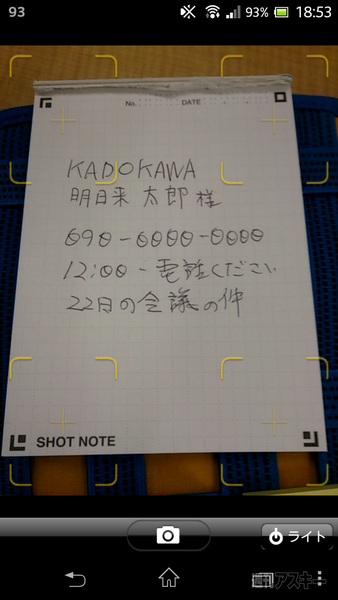 93 93% 18:53
No. DATE
KADOKAWA
明日来 太郎 様
090-0000-0000
12:00- 電話ください
22日の会議の件
SHOT NOTE
ライト
週刊アスキー